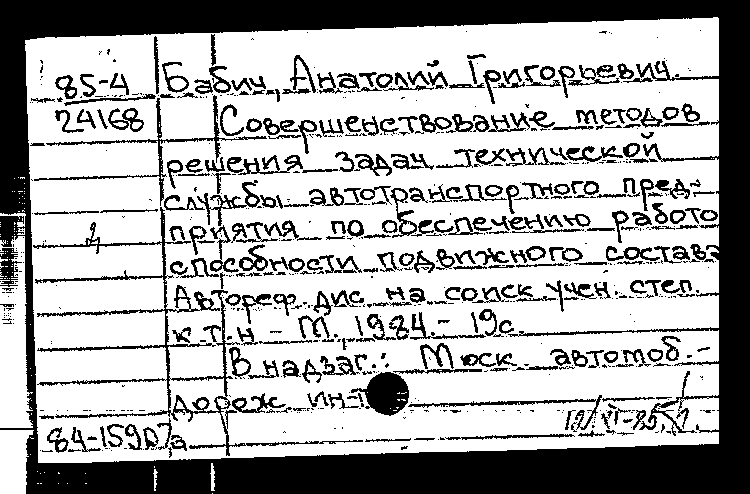 85-4 Бабич, Анатолий Григорьевич.
24168 Совершенствование методов
решения задач технической
службы автотранспортного пред-
приятия по обеспечению работо
способности подвижного состава
Автореф. дис на соиск. учен. степ.
к.т.н - М., 1984. - 19с.
В надзаг.: Моск. автомоб.-
дорож. ин-т
84-15907а